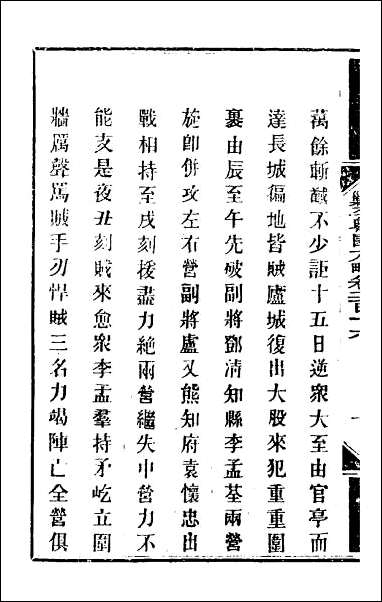 萬餘斬馘不少詎十五日逆衆大至由官亭而
達長城徧地皆賊廬城復出大股來犯重重圍
裹由辰至午先破副將鄧清知縣李孟基兩營
旋卽併攻左右營副將盧又熊知府袁懷忠出
戰相持至戌刻援盡力絶兩營繼失中營力不
能支是夜丑刻賊來愈衆李孟羣持矛屹立圍
牆厲聲罵賊手刃悍賊三名力竭陣亡全營俱